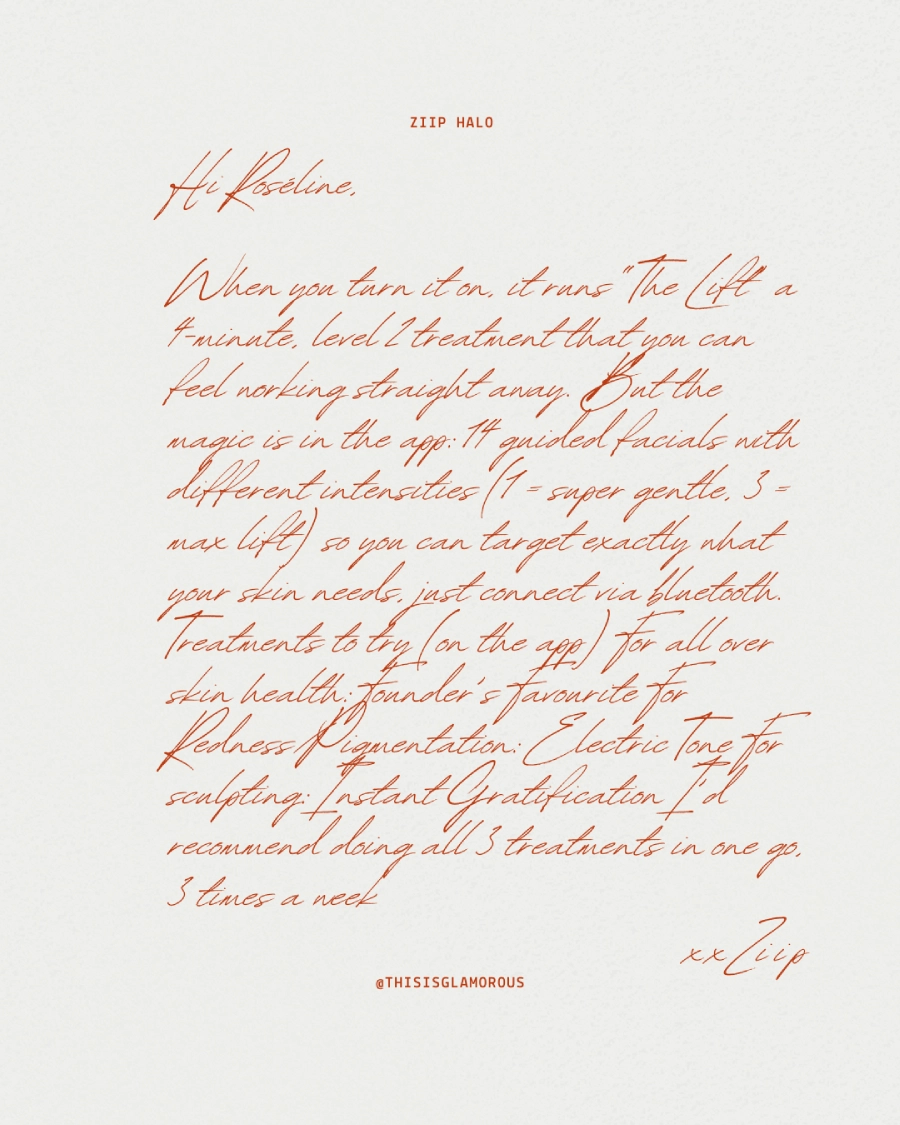 ZIIP HALO
Hi Roséline,
When you turn it on, it runs "The Lift" a
4-minute, level 2 treatment that you can
feel working straight away. But the
magic is in the app: 14 guided facials with
different intensities (1 = super gentle, 3 =
max lift) so you can target exactly what
your skin needs, just connect via bluetooth.
Treatments to try (on the app) For all over
skin health: Founder's Favourite For
Redness/Pigmentation: Electric Tone For
sculpting: Instant Gratification I'd
recommend doing all 3 treatments in one go,
3 times a week
xx Ziip
@THISISGLAMOROUS